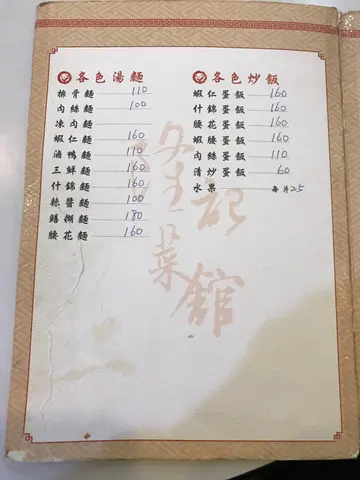 各色湯麵
排骨麵 110
肉絲麵 100
凍肉麵
蝦仁麵 160
滷鴨麵 110
三鮮麵 160
什錦麵 160
炸醬麵 100
鱔糊麵 180
腰花麵 160
各色炒飯
蝦仁蛋飯 160
什錦蛋飯 160
腰花蛋飯 160
蝦腰蛋飯 160
肉絲蛋飯 110
清炒蛋飯 60
水果 每片25
隆記菜館